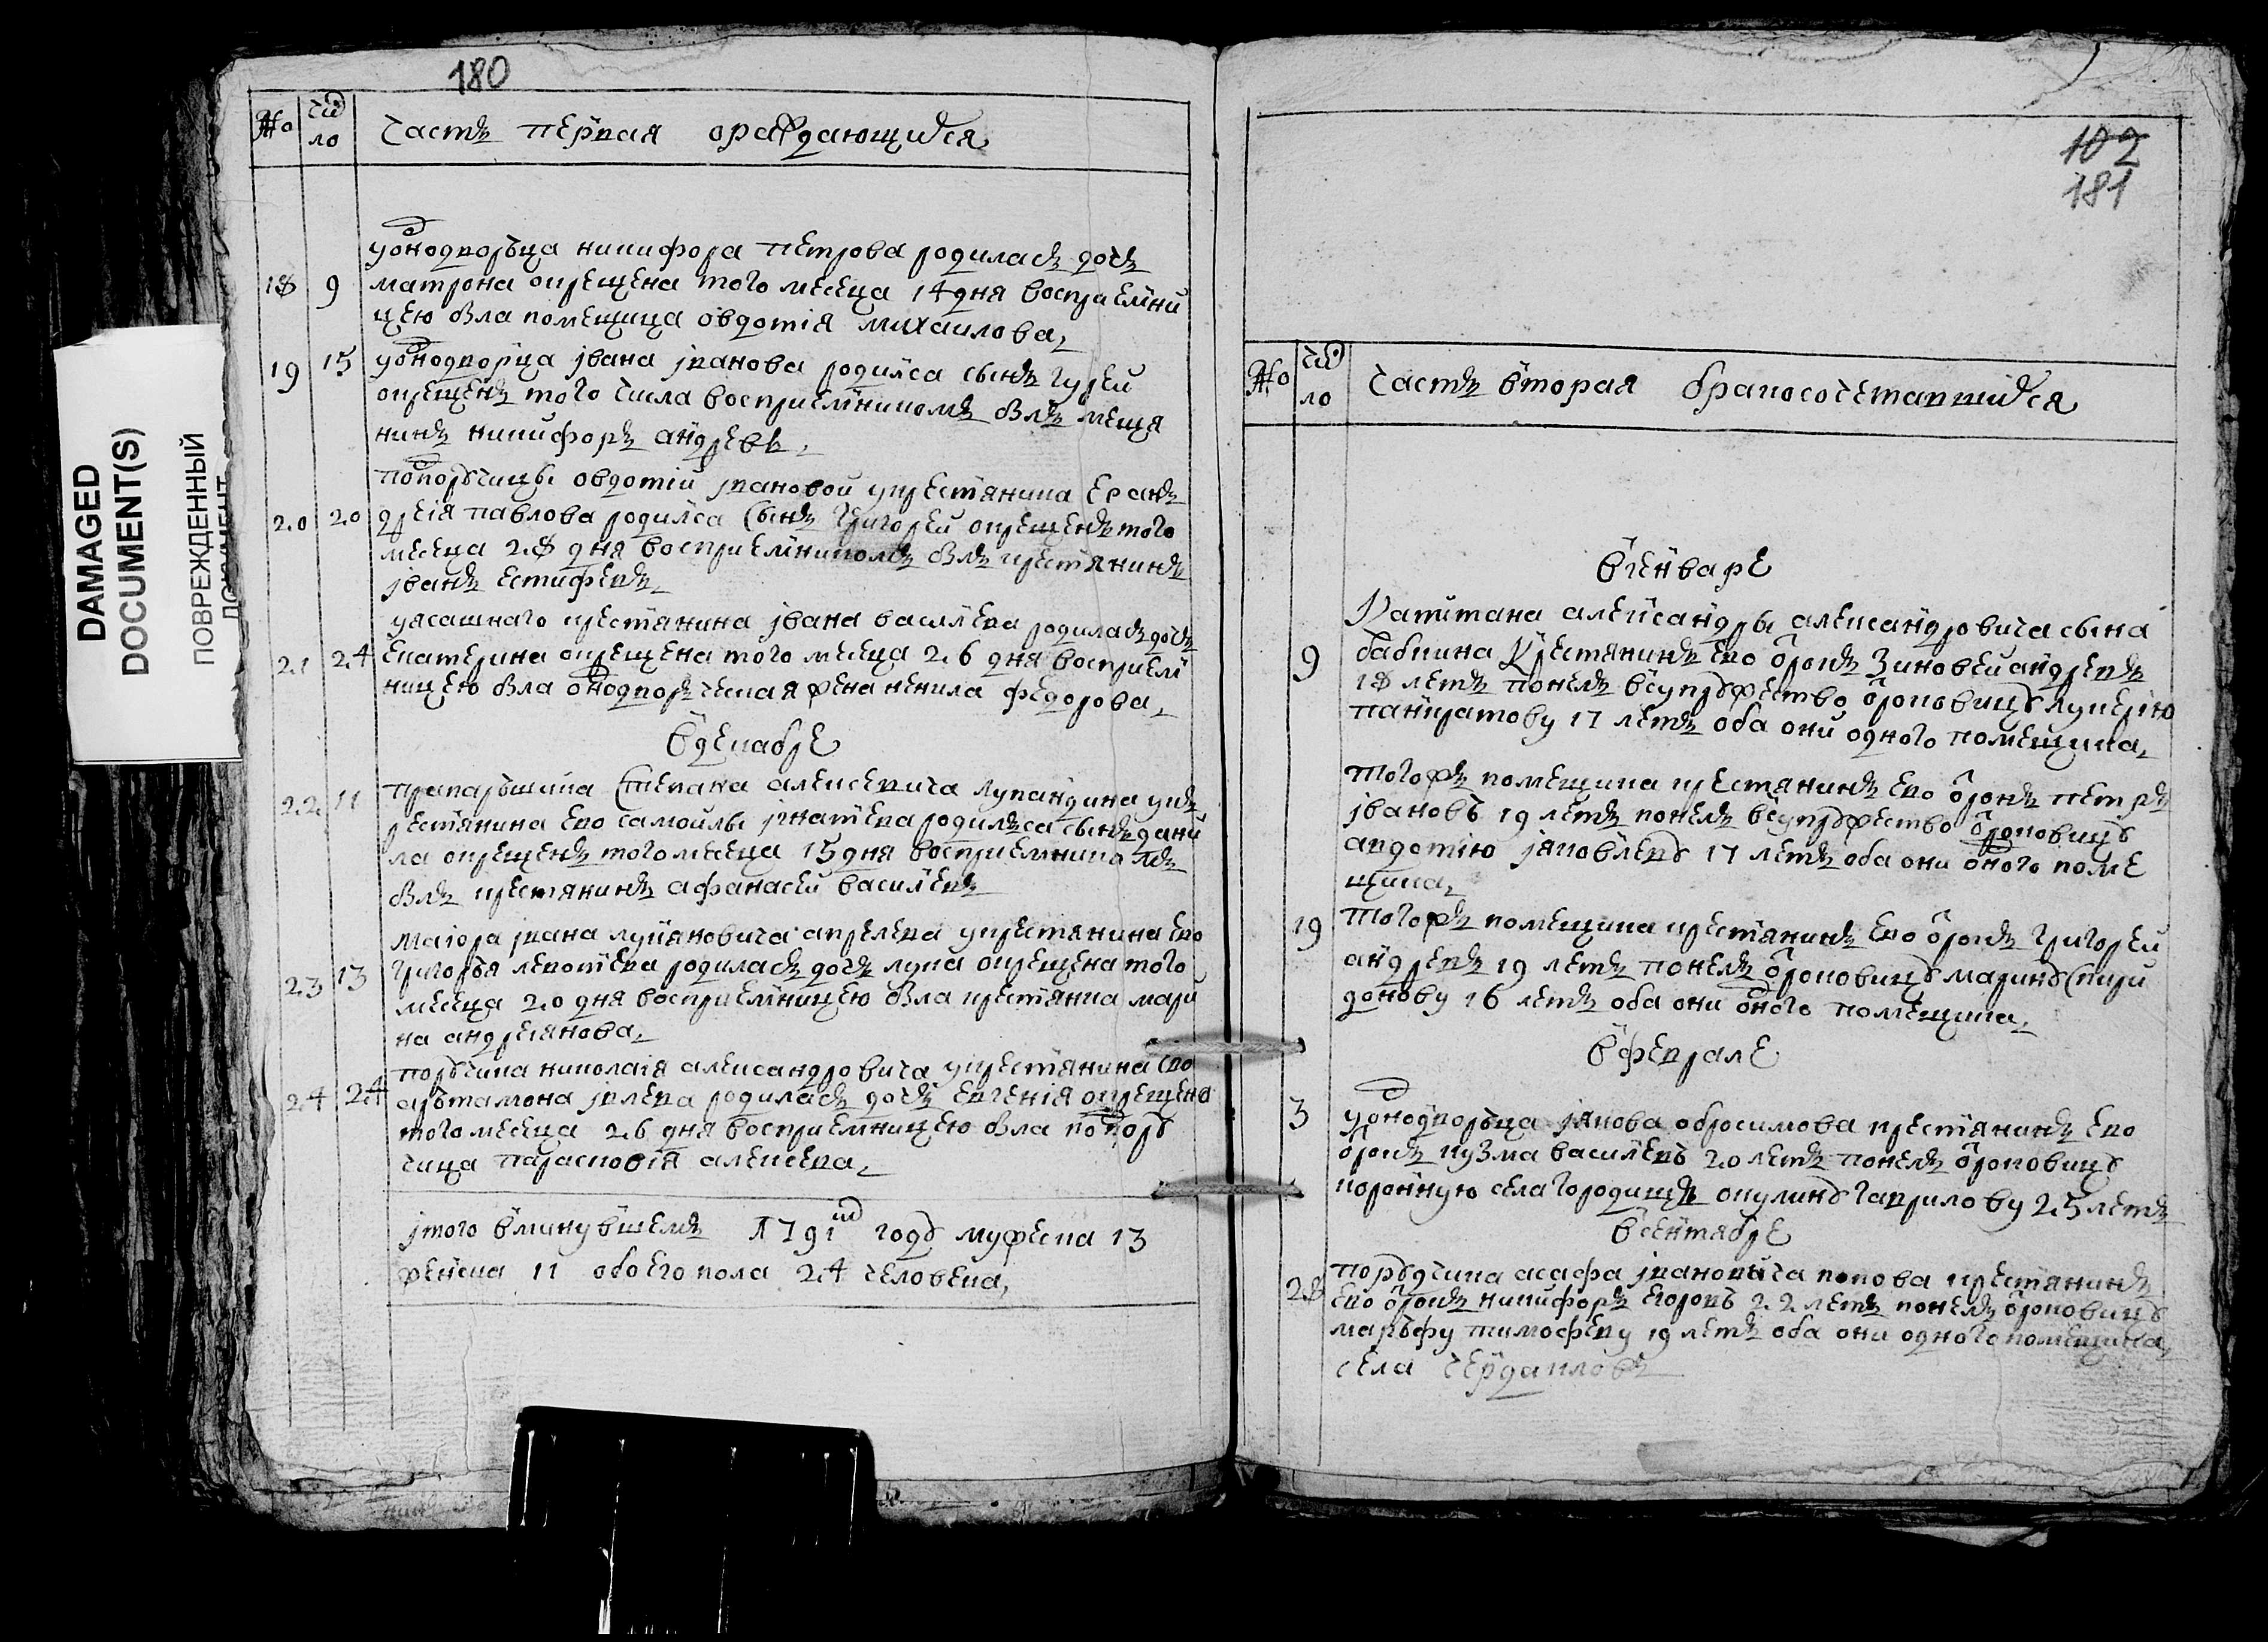 180
№ Число Часть первая ораждающихся
у однодворъца никифора петрова родиласъ дочъ
18 9 матрона окрещена того месеца 14 дня восприемни
цею была помещица овдотія михаилова
19 15 у однодворца івана іванова родился сынъ гурей
окрещенъ того числа восприемникомъ былъ меща
нинъ никифоръ андревъ
подпорутчицы овдотіи івановой у крестянина ее анъ
20 20 дреія павлова родился сынъ григорей окрещенъ того
месеца 28 дня восприемникомъ былъ крестянинъ
іванъ естифевъ
у ясашнаго крестянина івана василева родиласъ дочъ
21 24 екатерина окрещена того месеца 26 дня восприем
ницею была однодворъческая жена ненила федорова
в декабре
22 11 прапаръшика степана алексевича лупандина у къ
рестянина ево самойлы ігнатева родился сынъ дани
ла окрещенъ того месеца 15 дня восприемникомъ
былъ крестянинъ афанасей василевъ
маіора івана лукяновича апрелева у крестянина ево
23 13 григоръя левонтева родиласъ дочъ лукя окрещена того
месеца 20 дня восприемницею была крестянка мари
на андреянова
порутчика николаія александровича у крестянина ево
24 24 арътамона іевлева родиласъ дочъ евгенія окрещена
того месеца 26 дня восприемницею была подпору
чица парасковія алексева
Ітого в минувшемъ 1791м году мужеска 13
женска 11 обоего пола 24 человека
102
181
№ Число Частъ вторая бракосочетавшихся
В генваре
Капитана александры александровича сына
9 бабкина крестянинъ ево отрокъ зиновей андревъ
18 летъ понелъ в супружество отроковицу лукерію
панкратову 17 летъ оба они одного помещика
тогожъ помещика крестянинъ ево отрокъ петръ
івановъ 19 летъ понелъ в супружество отроковицу
авдотію іяковлеву 17 летъ оба они одного поме
щика
19 тогожъ помещика крестянинъ ево отрокъ григорей
андревъ 19 летъ понелъ отроковицу марину спири
донову 16 летъ оба они одного помещика
В феврале
3 у однодворъца іякова обросимова крестянинъ ево
отрокъ кузма василевъ 20 летъ понелъ отроковицу
коронную села городищъ акулину гаврилову 25 летъ
В сентябре
28 порудчика асафа івановича попова крестянинъ
ево отрокъ никифоръ егоровъ 22 летъ понелъ отроковицу
маръфу тимофеву 19 летъ оба они одного помещика
села чердаклов
DAMAGED
DOCUMENT(S)
ПОВРЕЖДЕННЫЙ
ДОКУМЕНТ